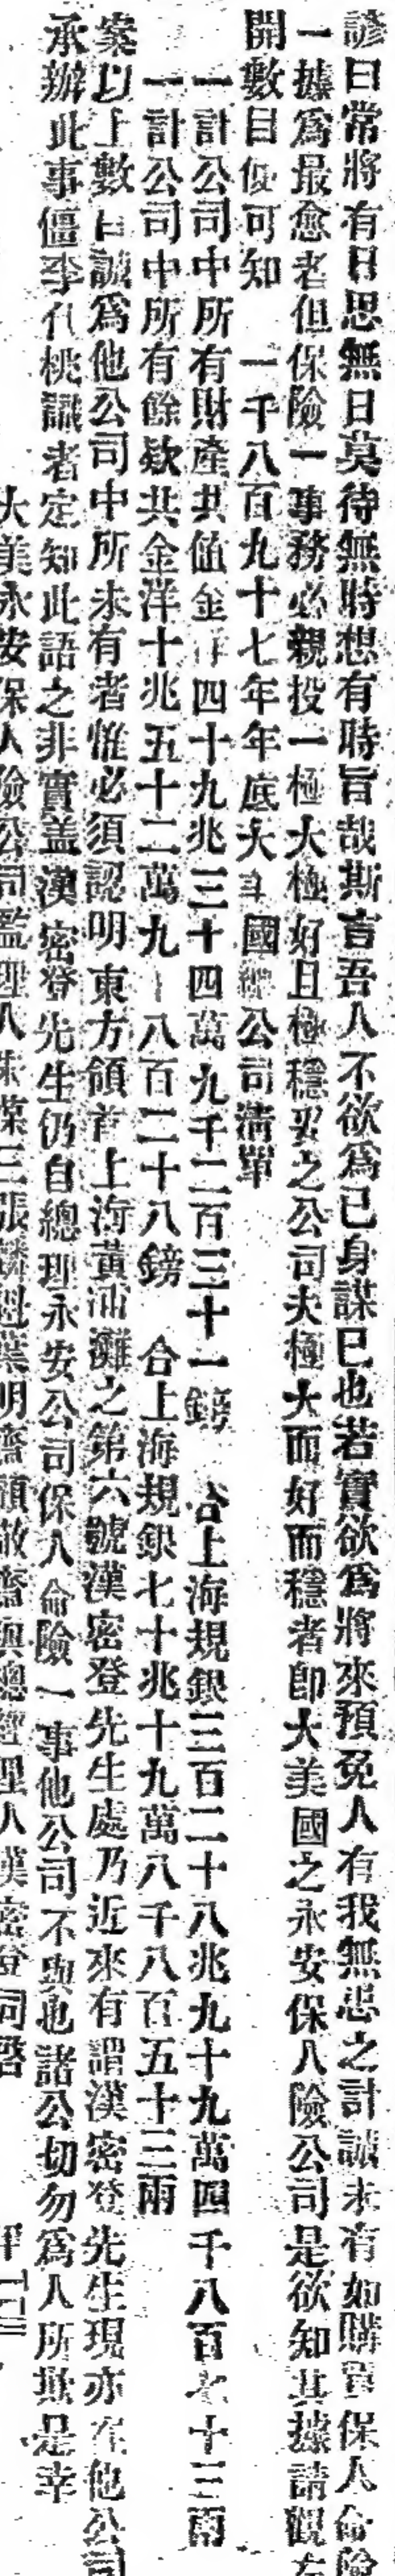 諺曰常將有日思無日莫待無時想有時旨哉斯言吾人不欲爲己身謀已也若實欲爲將來預免人有我無悲之計誠未有如購買保人命險
一據爲最愈者但保險一事務必親投一極大極好且極穩妥之公司夫極大而好而穩者卽大美國之永安保人險公司是欲知其據請觀左
開數目便可知　一千八百九十七年年底大美國總公司清單
一計公司中所有財產共值金洋四十九兆三十四萬九千二百三十一鎊　合上海規銀三百二十八兆九十九萬四千八百七十三兩
一計公司中所有餘欵共金洋十兆五十二萬九千八百二十八鎊　合上海規銀七十兆十九萬八千八百五十三兩
案以上數目誠爲他公司中所未有者惟必須認明東方領首上海黃浦灘之第六號漢密登先生處乃近來有謂漢密登先生現亦在他公司
承辦此事僵李代桃識者定知此語之非實蓋漢密登先生仍自總理永安公司保人命險一事他公司不與也諸公切勿爲人所欺是幸
大美永安保人險公司監理人　張麟魁葉明齋顧敬齋與總經理人漢密登同啓